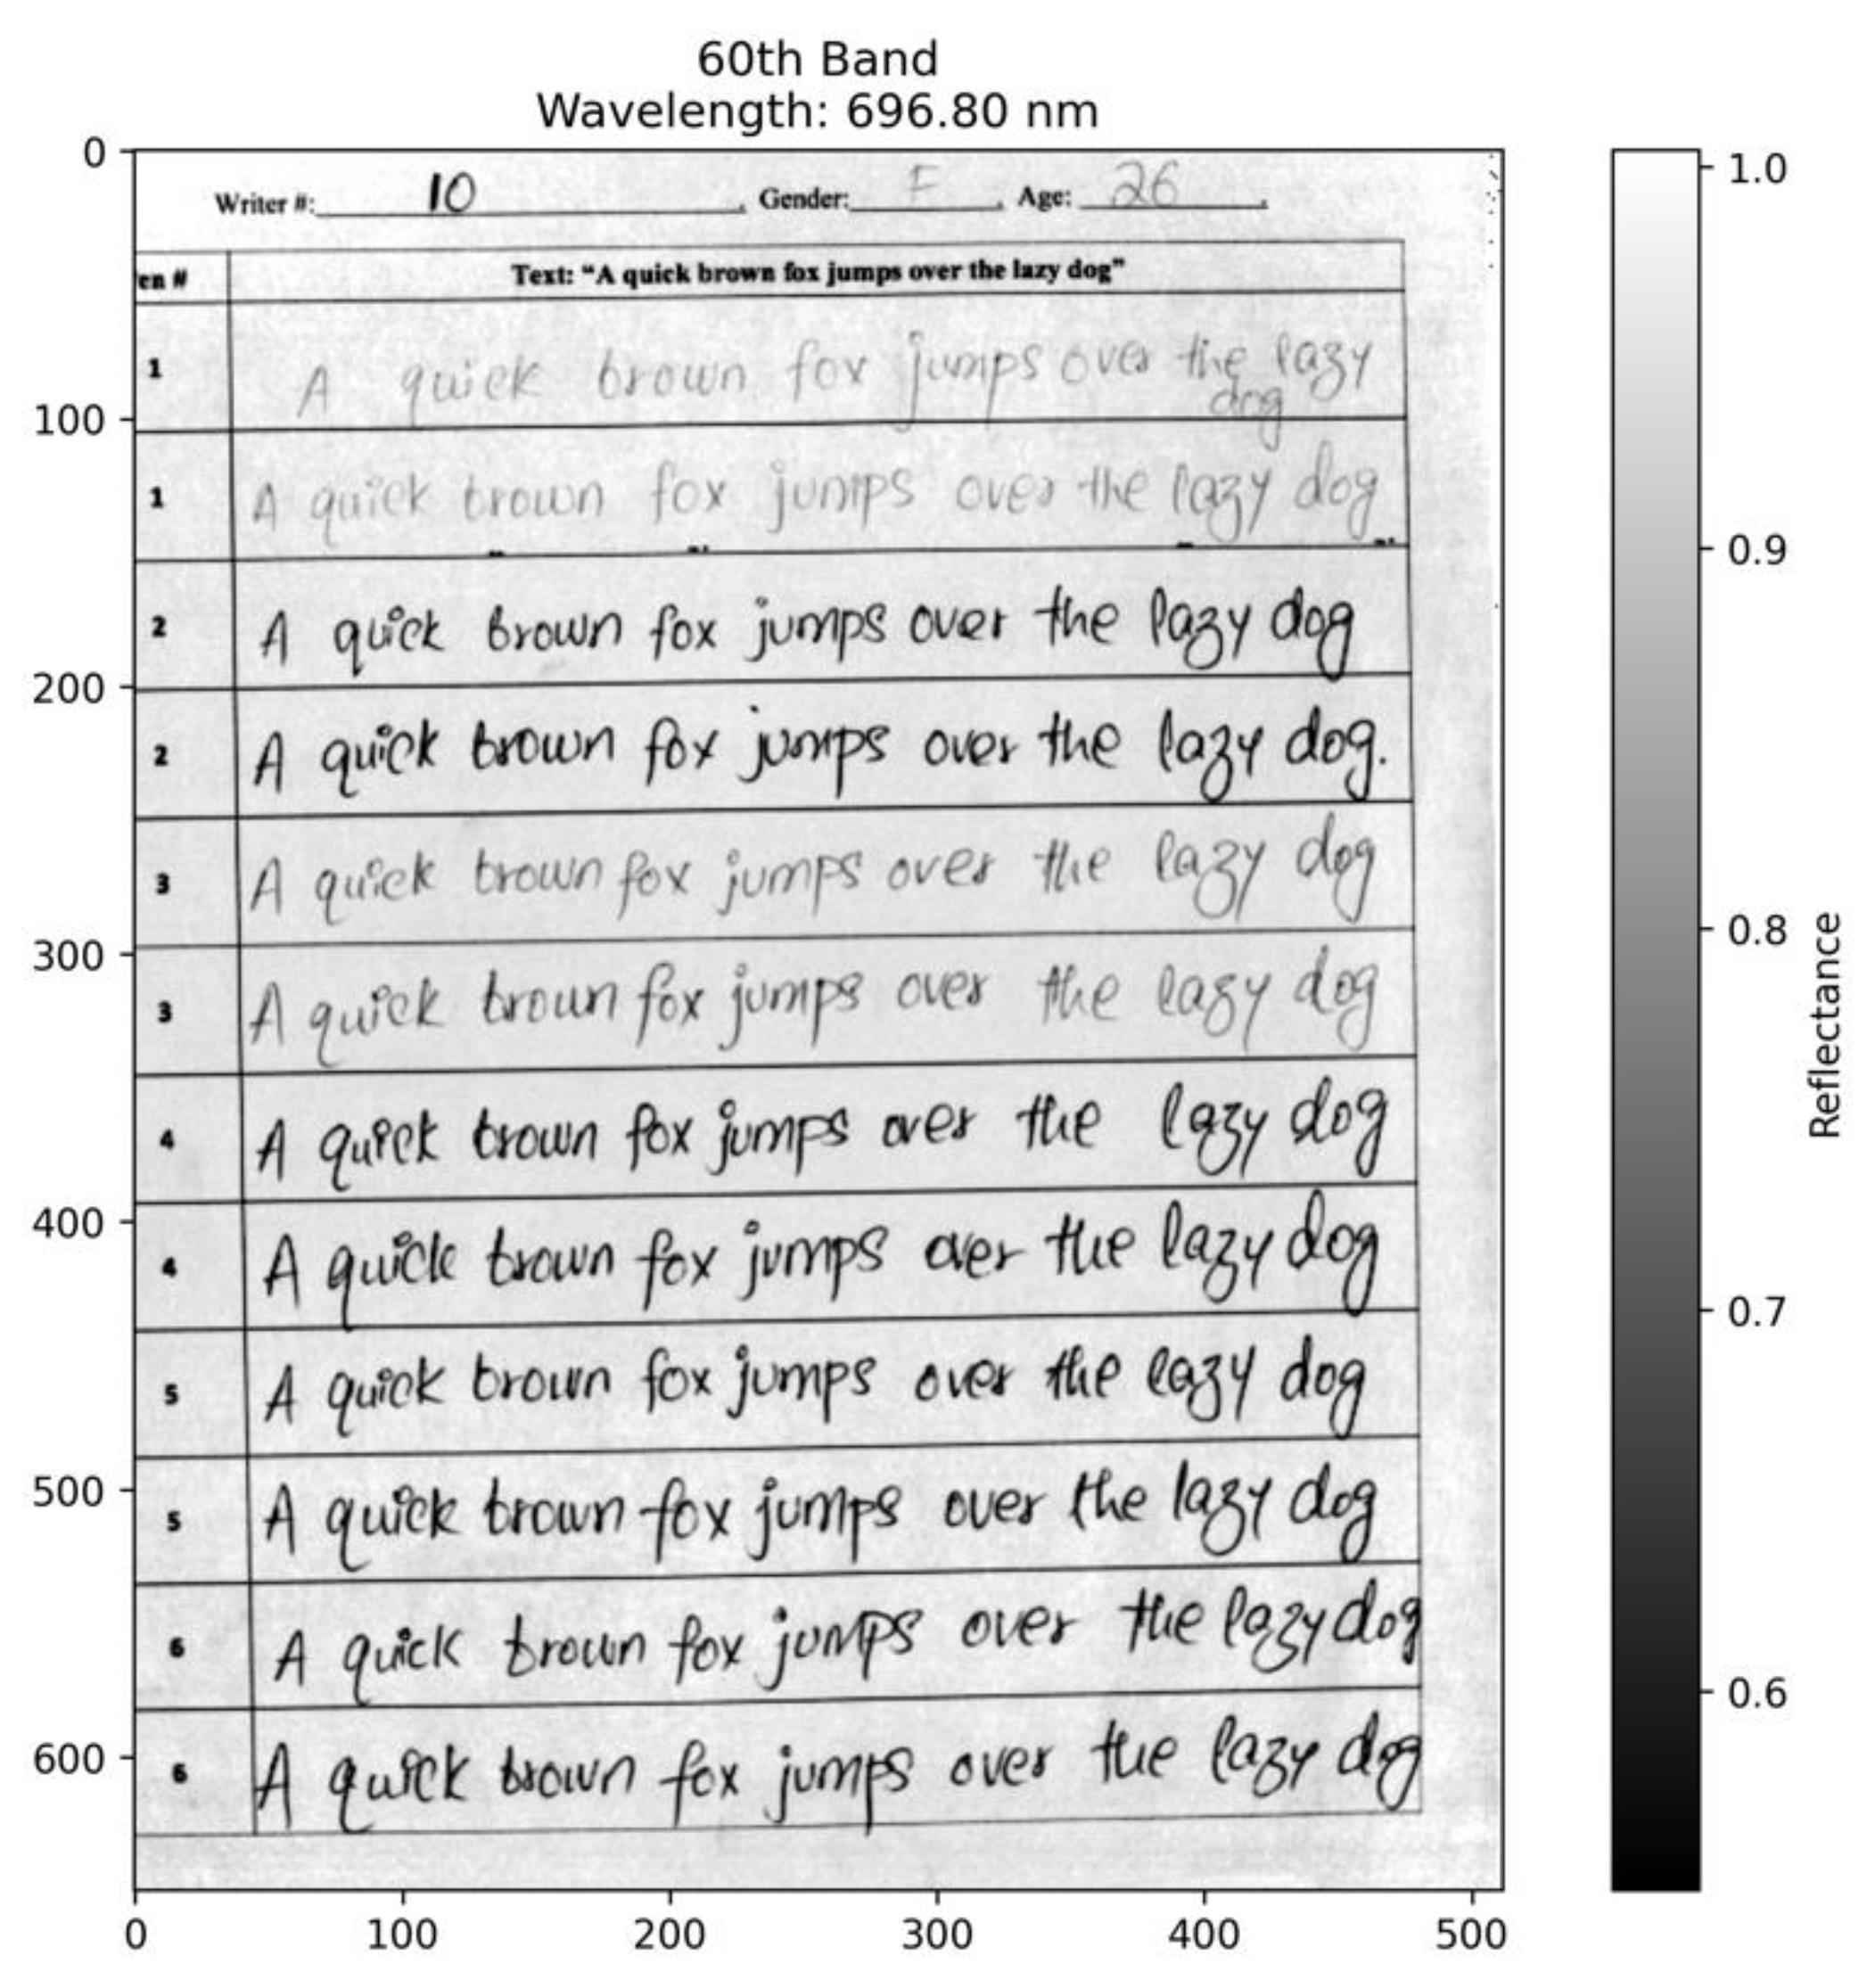 60th Band
Wavelength: 696.80 nm
Writer #: 10 Gender: F Age: 26
en # Text: “A quick brown fox jumps over the lazy dog”
1 A quick brown fox jumps over the lazy
dog
1 A quick brown fox jumps over the lazy dog
2 A quick brown fox jumps over the lazy dog
2 A quick brown fox jumps over the lazy dog.
3 A quick brown fox jumps over the lazy dog
3 A quick brown fox jumps over the lazy dog
4 A quick brown fox jumps over the lazy dog
4 A quick brown fox jumps over the lazy dog
5 A quick brown fox jumps over the lazy dog
5 A quick brown fox jumps over the lazy dog
6 A quick brown fox jumps over the lazy dog
6 A quick brown fox jumps over the lazy dog
0
100
200
300
400
500
600
0 100 200 300 400 500
1.0
0.9
0.8
0.7
0.6
Reflectance